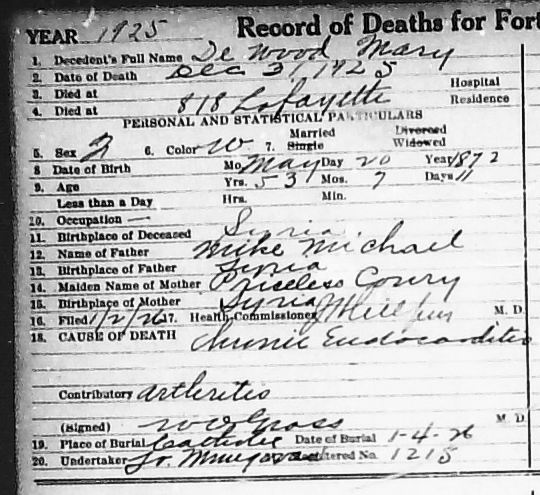 YEAR 1925 Record of Deaths for Fort
1. Decedent's Full Name De Wood Mary
2. Date of Death Dec 31, 1925
3. Died at Hospital
4. Died at 818 Lafayette Residence
PERSONAL AND STATISTICAL PARTICULARS
5. Sex F 6. Color W. 7. Married Single Divorced Widowed
8 Date of Birth Mo. May Day 20 Year 1872
9. Age Yrs. 53 Mos. 7 Days 11
Less than a Day Hrs. Min.
10. Occupation —
11. Birthplace of Deceased Syria
12. Name of Father Mike Michael
13. Birthplace of Father Syria
14. Maiden Name of Mother Priceless Coury
15. Birthplace of Mother Syria
16. Filed 1/2/26 17. Health Commissioner M. D.
18. CAUSE OF DEATH Chronic Endocarditis
Contributory Arthritis
(Signed) Gross M. D.
19. Place of Burial Catholic Date of Burial 1-4-26
20. Undertaker Registered No. 1215